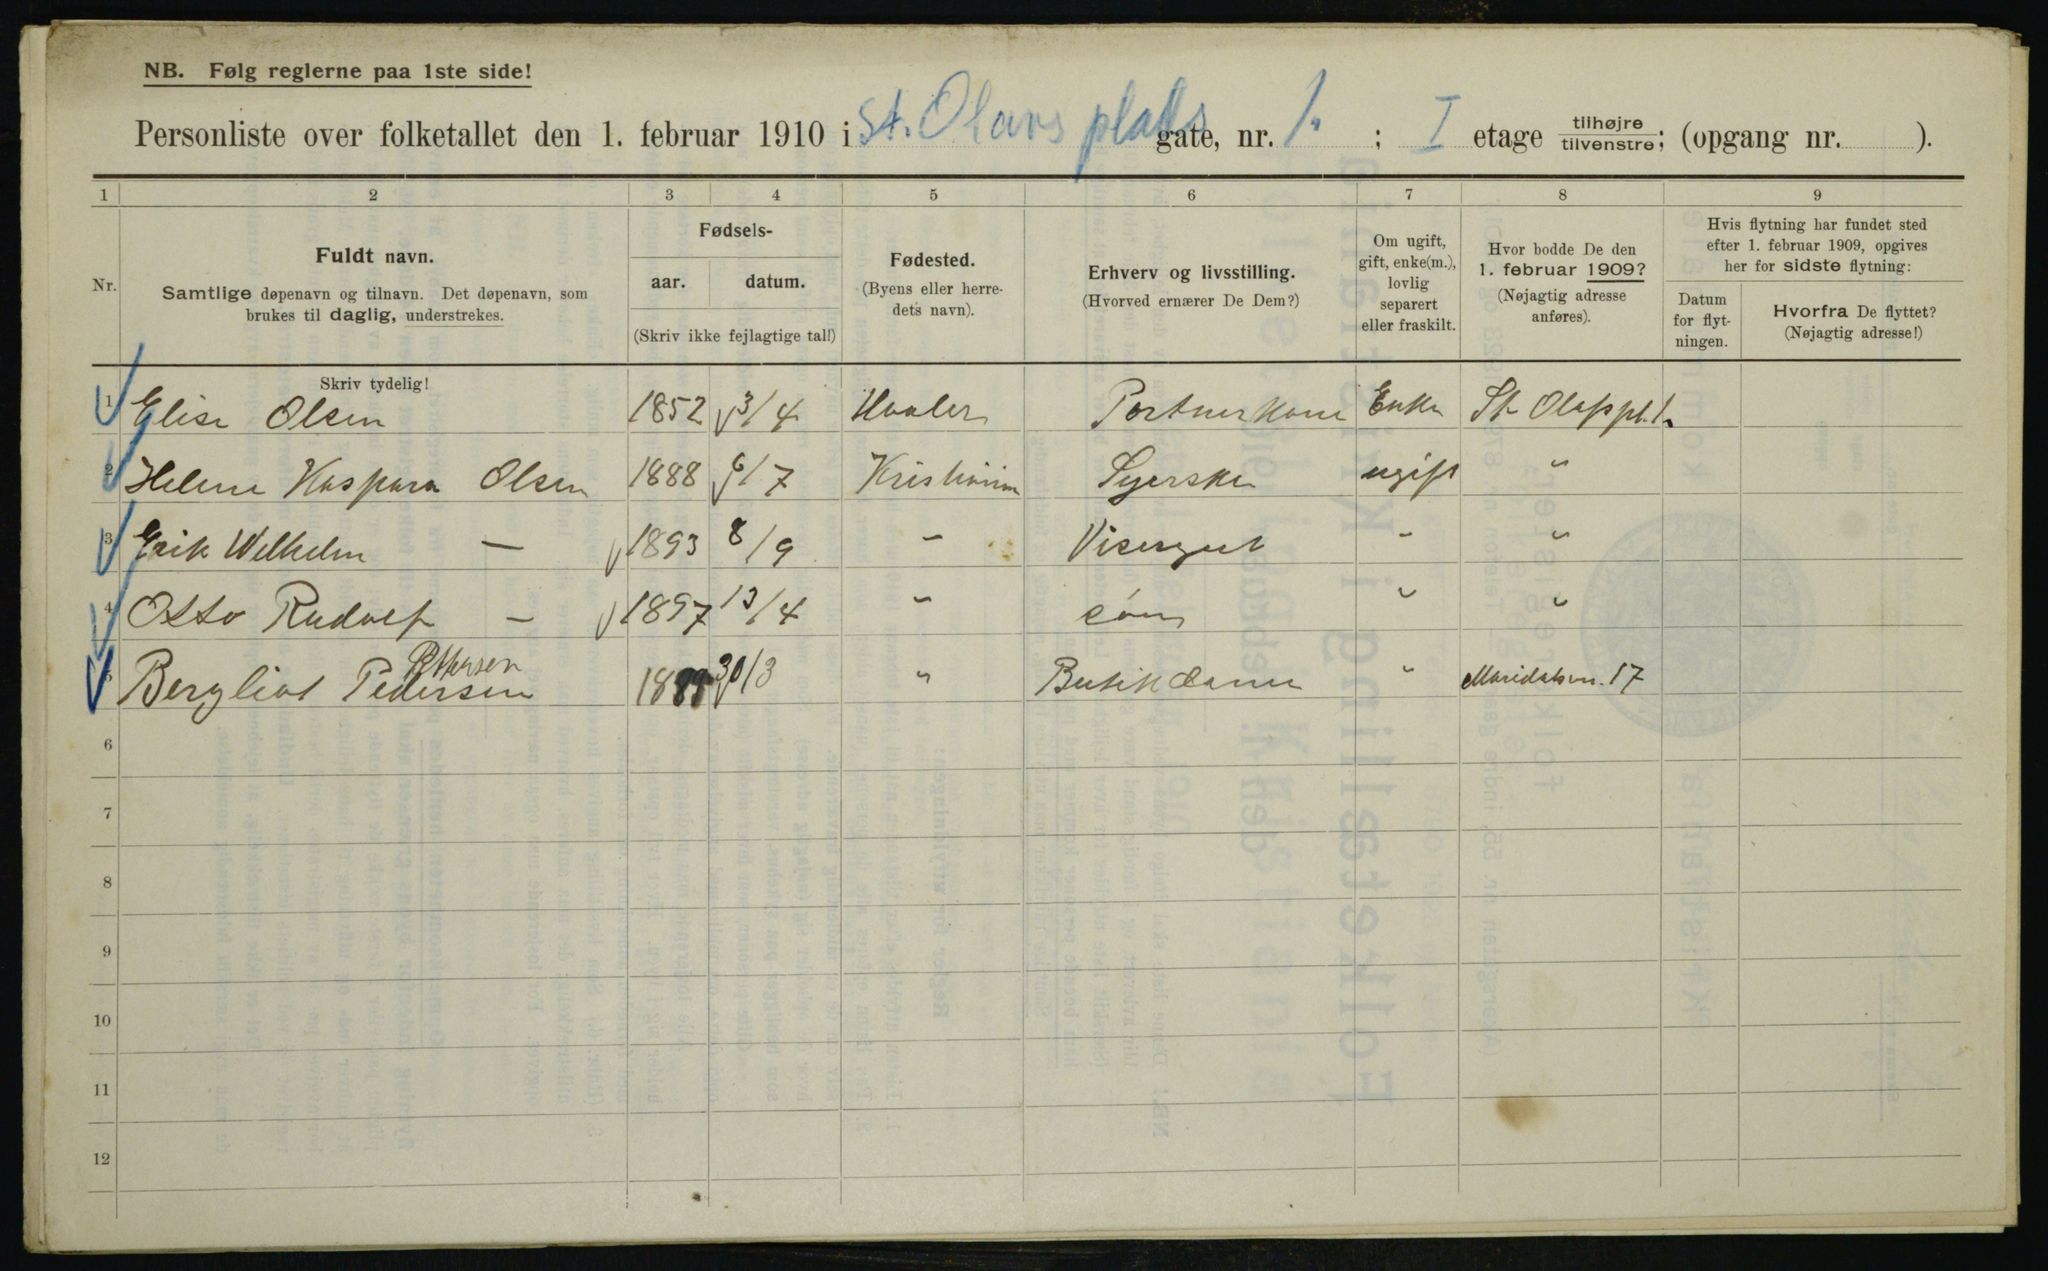 NB. Følg reglerne paa 1ste side!
Personliste over folketallet den 1. februar 1910 i St. Olavs plads gate, nr. 1. ; I etage tilhøjre/tilvenstre; (opgang nr. ).
1 2 3 4 5 6 7 8 9
Nr.
Fuldt navn.
Samtlige døpenavn og tilnavn. Det døpenavn, som
brukes til daglig, understrekes.
Skriv tydelig!
Fødsels-
aar. datum.
(Skriv ikke fejlagtige tal!)
Fødested.
(Byens eller herre-
dets navn).
Erhverv og livsstilling.
(Hvorved ernærer De Dem?)
Om ugift,
gift, enke(m.),
lovlig
separert
eller fraskilt.
Hvor bodde De den
1. februar 1909?
(Nøjagtig adresse
anføres).
Hvis flytning har fundet sted
efter 1. februar 1909, opgives
her for sidste flytning:
Datum
for flyt-
ningen.
Hvorfra De flyttet?
(Nøjagtig adresse!)
1 Elise Olsen 1852 3/4 Hvaler Portnerkone Enke St. Olafspl. 1.
2 Helene Kaspara Olsen 1888 6/7 Kristiania Syerske ugift "
3 Erik Wilhelm — 1893 8/9 " Visergut " "
4 Otto Rudolf — 1897 13/4 " søn " "
Pettersen
5 Bergliot Pedersen 1889 30/3 " Butikdame " Maridalsvn. 17
6
7
8
9
10
11
12